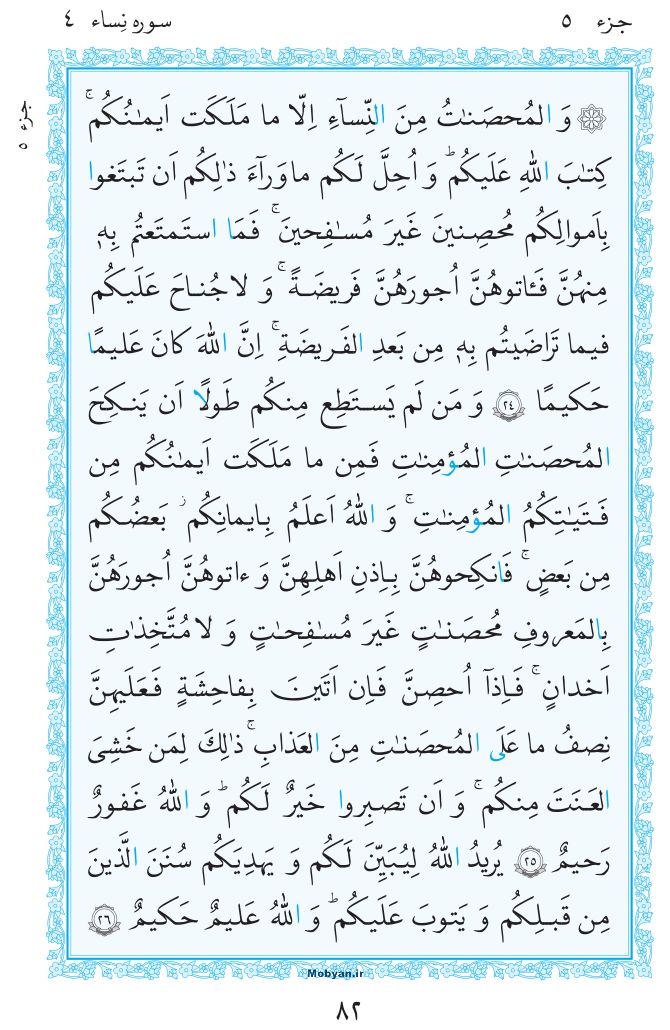 جزء ٥
سوره نِساء ٤
جزء ٥
۞ وَ المُحصَنـٰتُ مِنَ النِّسآءِ اِلّا ما مَلَكَت اَيمـٰنُكُم ۚ
كِتـٰبَ اللّٰهِ عَلَيكُم ۚ وَ اُحِلَّ لَكُم ماوَرآءَ ذٰلِكُم اَن تَبتَغوا
بِاَموالِكُم مُحصِنينَ غَيرَ مُسـٰفِحينَ ۚ فَمَا استَمتَعتُم بِهٖ
مِنهُنَّ فَـٔاتوهُنَّ اُجورَهُنَّ فَريضَةً ۚ وَ لاجُناحَ عَلَيكُم
فيما تَرٰاضَيتُم بِهٖ مِن بَعدِ الفَريضَةِ ۚ اِنَّ اللّٰهَ كانَ عَليمًا
حَكيمًا ٢٤ وَ مَن لَم يَستَطِع مِنكُم طَولًا اَن يَنكِحَ
المُحصَنـٰتِ المُؤمِنـٰتِ فَمِن ما مَلَكَت اَيمـٰنُكُم مِن
فَتَيـٰتِكُمُ المُؤمِنـٰتِ ۚ وَ اللّٰهُ اَعلَمُ بِايمانِكُم ۚ بَعضُكُم
مِن بَعضٍ ۚ فَانكِحوهُنَّ بِاِذنِ اَهلِهِنَّ وَ ءاتوهُنَّ اُجورَهُنَّ
بِالمَعروفِ مُحصَنـٰتٍ غَيرَ مُسـٰفِحـٰتٍ وَ لامُتَّخِذٰتِ
اَخدانٍ ۚ فَاِذآ اُحصِنَّ فَاِن اَتَينَ بِفاحِشَةٍ فَعَلَيهِنَّ
نِصفُ ما عَلَى المُحصَنـٰتِ مِنَ العَذابِ ۚ ذٰلِكَ لِمَن خَشِىَ
العَنَتَ مِنكُم ۚ وَ اَن تَصبِروا خَيرٌ لَكُم ۗ وَ اللّٰهُ غَفورٌ
رَحيمٌ ٢٥ يُريدُ اللّٰهُ لِيُبَيِّنَ لَكُم وَ يَهدِيَكُم سُنَنَ الَّذينَ
مِن قَبلِكُم وَ يَتوبَ عَلَيكُم ۗ وَ اللّٰهُ عَليمٌ حَكيمٌ ٢٦
Mobyan.ir
٨٢